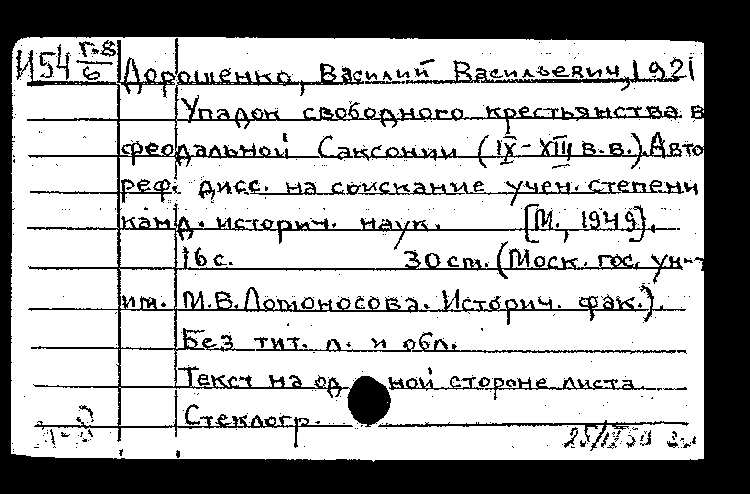 И54 Г-8/6 Дорошенко, Василий Васильевич, 1921
Упадок свободного крестьянства в
феодальной Саксонии (IX-XIII в.в.). Авто
реф. дисс. на соискание учен. степени
канд. историч. наук. [М., 1949].
16 с. 30 cm. (Моск. гос. ун-т
им. М.В. Ломоносова. Историч. фак.).
Без тит. л. и обл.
Текст на од ной стороне листа
Стеклогр.